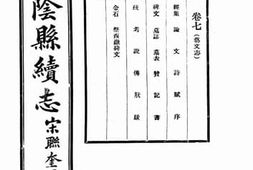 卷七 (藝文志)
論 文 詩 賦 序
碑文 墓誌 墓表 贊 記 書
考 說 傳
金石 碑文
陰縣續志
宋聯奎